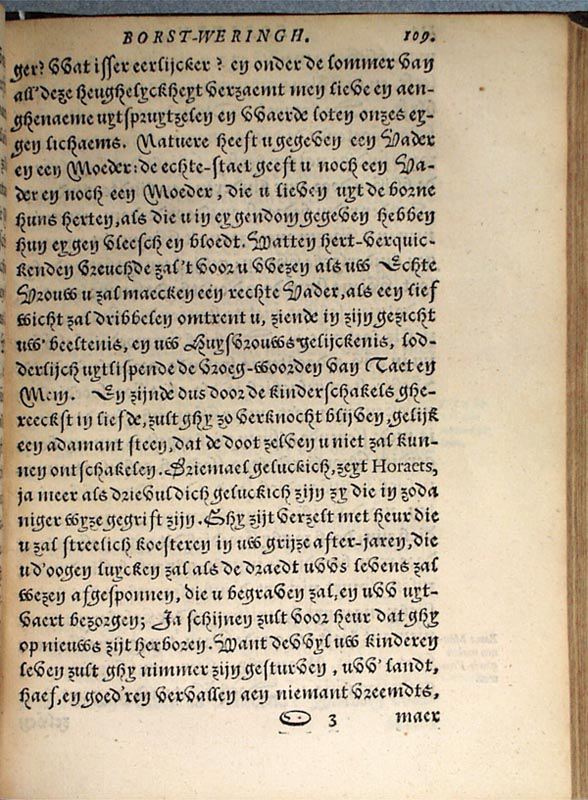 BORST-WERINGH. 109.
ger? VVat isser eerlijcker? en onder de lommer van
all' deze heughelyckheyt verzaemt men lieve en aen-
ghenaeme uytspruytzelen en VVaerde loten onzes ey-
gen lichaems. Natuere heeft u gegeven een Vader
en een Moeder: de echte-staet geeft u noch een Va-
der en noch een Moeder, die u lieven uyt de borne
huns herten, als die u in eygendom gegeven hebben
hun eygen vleesch en bloedt. Watten hert-verquic-
kenden vreuchde zal't voor u VVezen als uw Echte
Vrouw u zal maecken een rechte Vader, als een lief
wicht zal dribbelen omtrent u, ziende in zijn gezicht
uw' beeltenis, en uw Huysvrouws gelijckenis, lod-
derlijch uytlispende de vroeg-woorden van Taet en
Mem. En zijnde dus door de kinderschakels ghe-
reeckst in liefde, zult ghy zo verknocht blijven, gelijk
een adamant steen, dat de doot zelven u niet zal kun-
nen ontschakelen. Driemael geluckich, zeyt Horaets,
ja meer als drievuldich geluckich zijn zy die in zoda
niger wyze gegrift zijn. Ghy zijt verzelt met heur die
u zal streelich koesteren in uw grijze after-jaren, die
u d'oogen luycken zal als de draedt uVVs levens zal
wezen afgesponnen, die u begraven zal, en uVV uyt-
vaert bezorgen; Ja schijnen zult voor heur dat ghy
op nieuws zijt herboren. Want deVVyl uw kinderen
leven zult ghy nimmer zijn gesturven, uVV' landt,
haef, en goed'ren vervallen aen niemant vreemdts,
3 maer